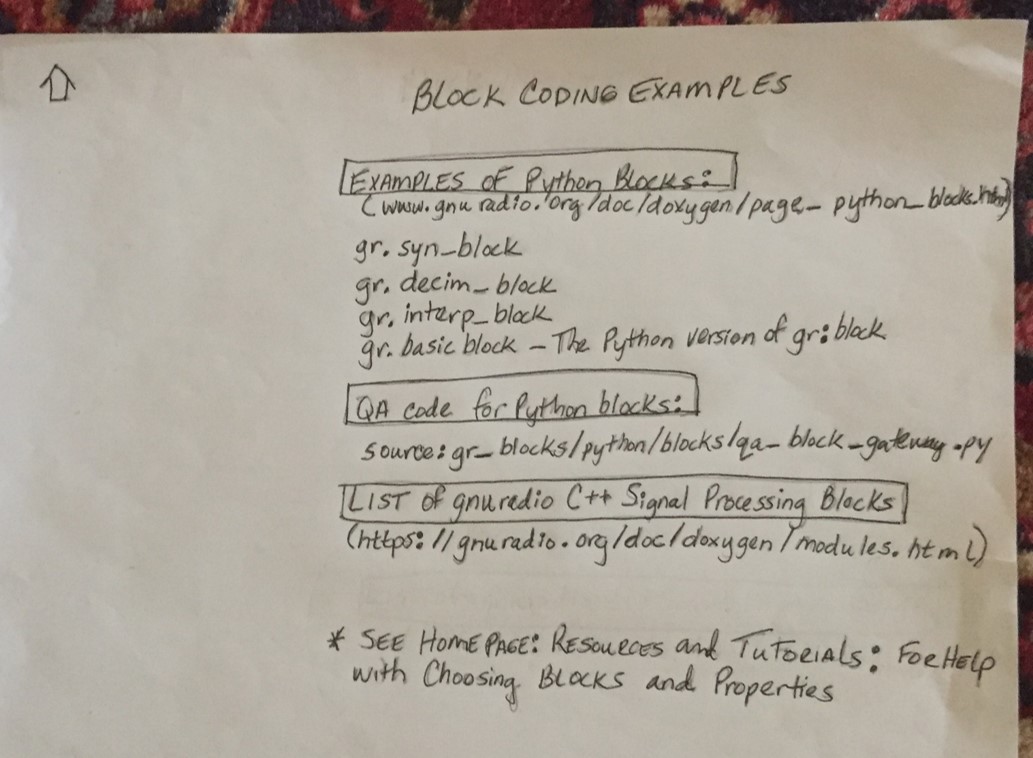 BLOCK CODING EXAMPLES
EXAMPLES OF Python Blocks:
(www.gnuradio.org/doc/doxygen/page_python_blocks.html)
gr. syn_block
gr. decim_block
gr. interp_block
gr. basic block - The Python version of gr: block
QA code for Python blocks:
source: gr_blocks/python/blocks/qa_block_gateway.py
LIST of gnuradio C++ Signal Processing Blocks
(https://gnuradio.org/doc/doxygen/modules.html)
* SEE HOME PAGE: RESOURCES and TUTORIALS: FOR HELP
with Choosing BLOCKS and Properties